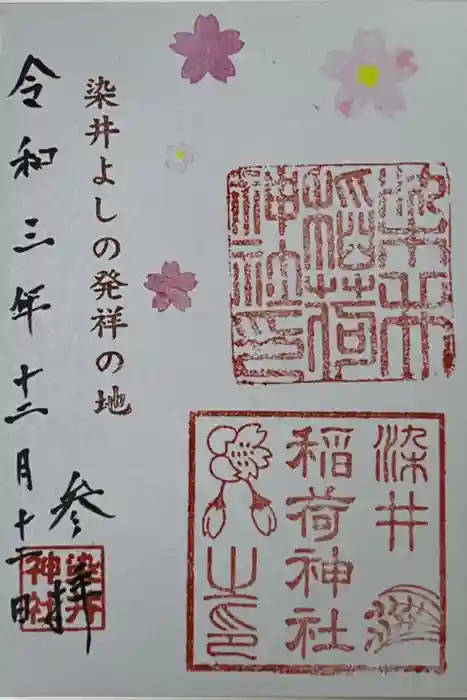 染井
稲荷
神社印
染井
稲荷神社
之印
染井よしの発祥の地
参拝
染井
神社
令和三年十二月十 日